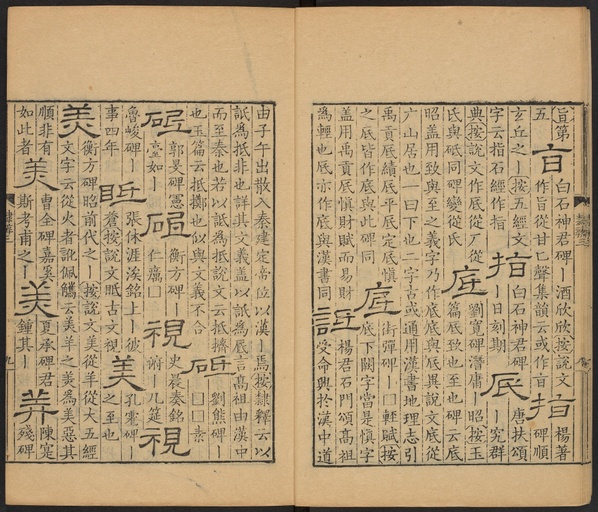 旨第五 白石神君碑｜酒欣欣按說文作旨從甘匕聲集韻云或作㫖 楊著碑順
玄丘之｜按五經文字云指石經作指 白石神君碑｜日刻期 唐扶頌｜究群
典按說文作底從厂從氐與砥同碑變從氏 劉寬碑潛庸｜昭按玉篇底致也至也碑云底
昭蓋用致與至之義字乃作底底與底異說文底從
广山居也一曰下也二字古或通用漢書地理志引
禹貢底績底平底定底慎之底皆作底與此碑同 街彈碑｜□輕賦按底下闕字當是慎字
蓋用禹貢底慎財賦而易財為輕也底亦作底與漢書同 楊君石門頌高祖受命興於漢中道
由子午出散入秦建定帝位以漢｜焉按隸釋云以
詆為抵非也詳其文義蓋以詆為底言高祖由漢中
而至秦也若以詆為抵說文云抵擠也玉篇云抵擲也似與文義不合 劉熊碑｜□□素
郭旻碑憲臺如｜ 衡方碑｜仁癘□ 史晨奏銘俯｜几筵
魯峻碑｜事四年 張休涯涘銘上｜彼蒼按說文眡古文視 孔龢碑｜之至也
衡方碑昭前代之｜按說文美從羊從大五經文字云從火者訛佩觿云羙羊之羙為美惡其
順非有如此者 曹全碑嘉棐斯考甫之｜ 夏承碑君鍾其｜ 陳寔殘碑